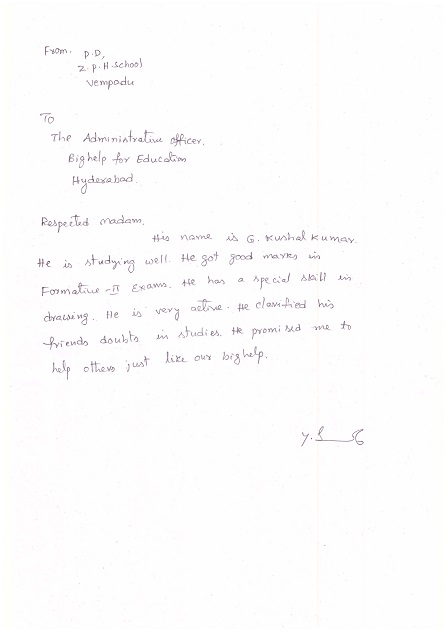 From. P.D,
Z.P.H.School
Vempadu
To
The Administrative officer.
Bighelp for Education
Hyderabad.
Respected madam.
His name is G. Kushal Kumar.
He is studying well. He got good marks in
Formative-II Exams. He has a special skill in
drawing. He is very active. He clarified his
friends doubts in studies. He promised me to
help others just like our bighelp.